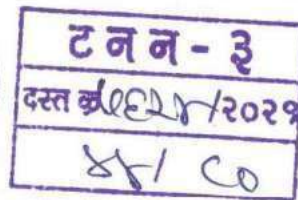 ट न न - ३
दस्त क्र /२०२१
४४/ ८०